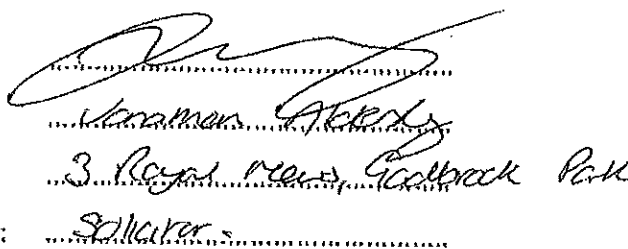 Jonathan
3 Royal Mews, Gadbrook Park
: Solicitor.